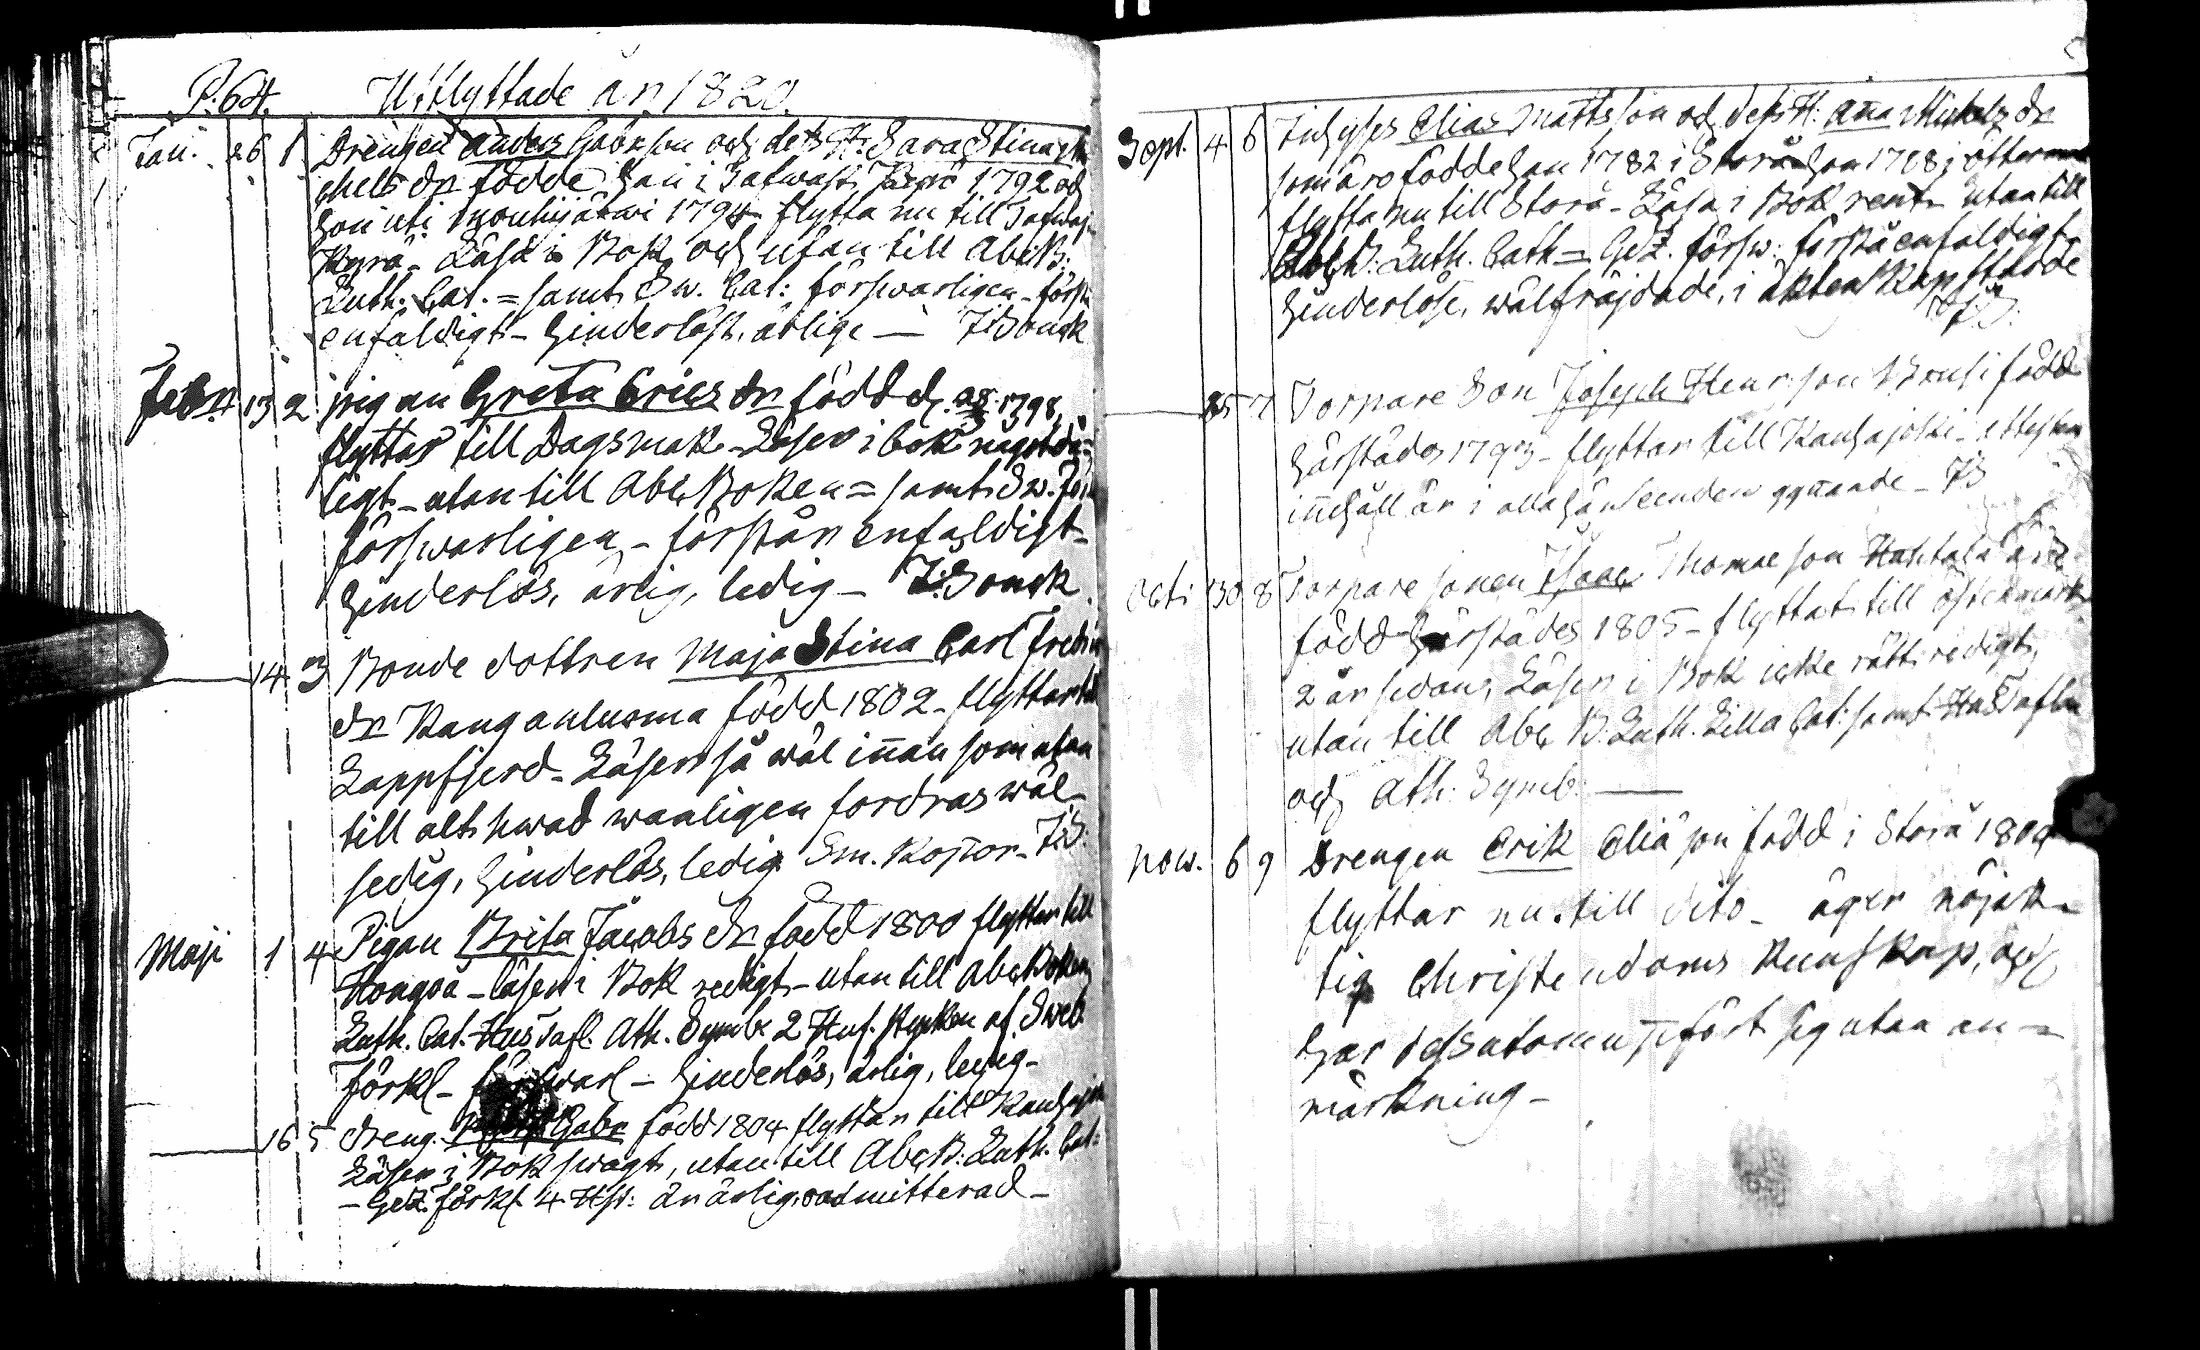 P. 64. Utflyttade år 1820.
Jan. 26 1 Drengen Anders Gabr.son och dess H. Sara Stina
chels dr födde han i Ilfwast Kyrö 1792 och
hon uti Mouhijärwi 1794 flytta nu till
Kyrö - Läsa i Bok och utan till Abc B.
Luth. Cat. = samt Sw. Cat: förswarligen - förstå
enfaldigt - hinderlöst, ärlige — J Bonck
Febr. 13 2 pigan Greta Erics dr född d. 1798,
flyttar till Dagsmark - Läser i bok något
ligt - utan till Abc Boken = samt Sw.
förswarligen - förstår enfaldigt -
hinderlös, ärlig, ledig - J. Bonck
14 3 Bonde dottren Maja Stina Carl Fredr.
dr Kanganluoma född 1802 - flyttar till
Lappfjerd - Läser så wäl innan som utan
till alt hwad wanligen fordras wäl
sedig, hinderlös, ledig. Sm. Koppor - JB.
Maji 1 4 Pigan Brita Jacobs dr född 1800 flyttar till
Hongoå - läser i Bok redigt - utan till Abc Boken
Luth. Cat. Hus Tafl. Ath. Symb. 2 Huf. stycken af Sweb
förkl - förswarl - hinderlös, ärlig, ledig -
16 5 dreng. Gabr född 1804 flyttar till Kauhajoki
Läser i Bok swagt, utan till Abc B: Luth. Cat:
- förkl. 4 Hst: är ärlig, oadmitterad -
Sept. 4 6 Inhyses Elias Mattsson och dess H: Anna Michels dr
som äro födde han 1782 i Storå hon 1768 i
flytta nu till Storå - Läsa i Bok rent - utan till
Abc B: Luth. Cath = förw: förstå enfaldigt
hinderlöse, wälfräjdade, i äktenskap stadde
JB.
25 7 Torpare Son Joseph Henr.son född
härstädes 1793 - flyttar till Kauhajoki - attesten
innehåll är i alla hänseenden gynnande - JB
Oct: 30 8 Torpare sonen Isaac Thomae son Hahtala är
född härstädes 1805 - flyttat till Östermark
2 år sedan, Läser i Bok icke rätt redigt,
utan till Abc B. Luth. Lilla Cat: samt Hus Taflan
och Ath: Symb: —
Now. 6 9 Drengen Erik Eliä son född i Storå 1804
flyttar nu till dito - äger nöjak-
tig Christendoms Kunskap, och
har dessutom upfört sig utan an-
märkning -